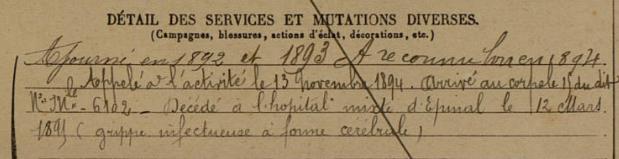 DÉTAIL DES SERVICES ET MUTATIONS DIVERSES.
(Campagnes, blessures, actions d'éclat, décorations, etc.)
Ajourné en 1892 et 1893 A reconnu bon en 1894.
Appelé à l'activité le 13 novembre 1894. Arrivé au corps le 15 du dit
Nº Mle - 6102 - Décédé à l'hopital mixte d'Epinal le 12 Mars
1895 (grippe infectueuse à forme cérébrale)